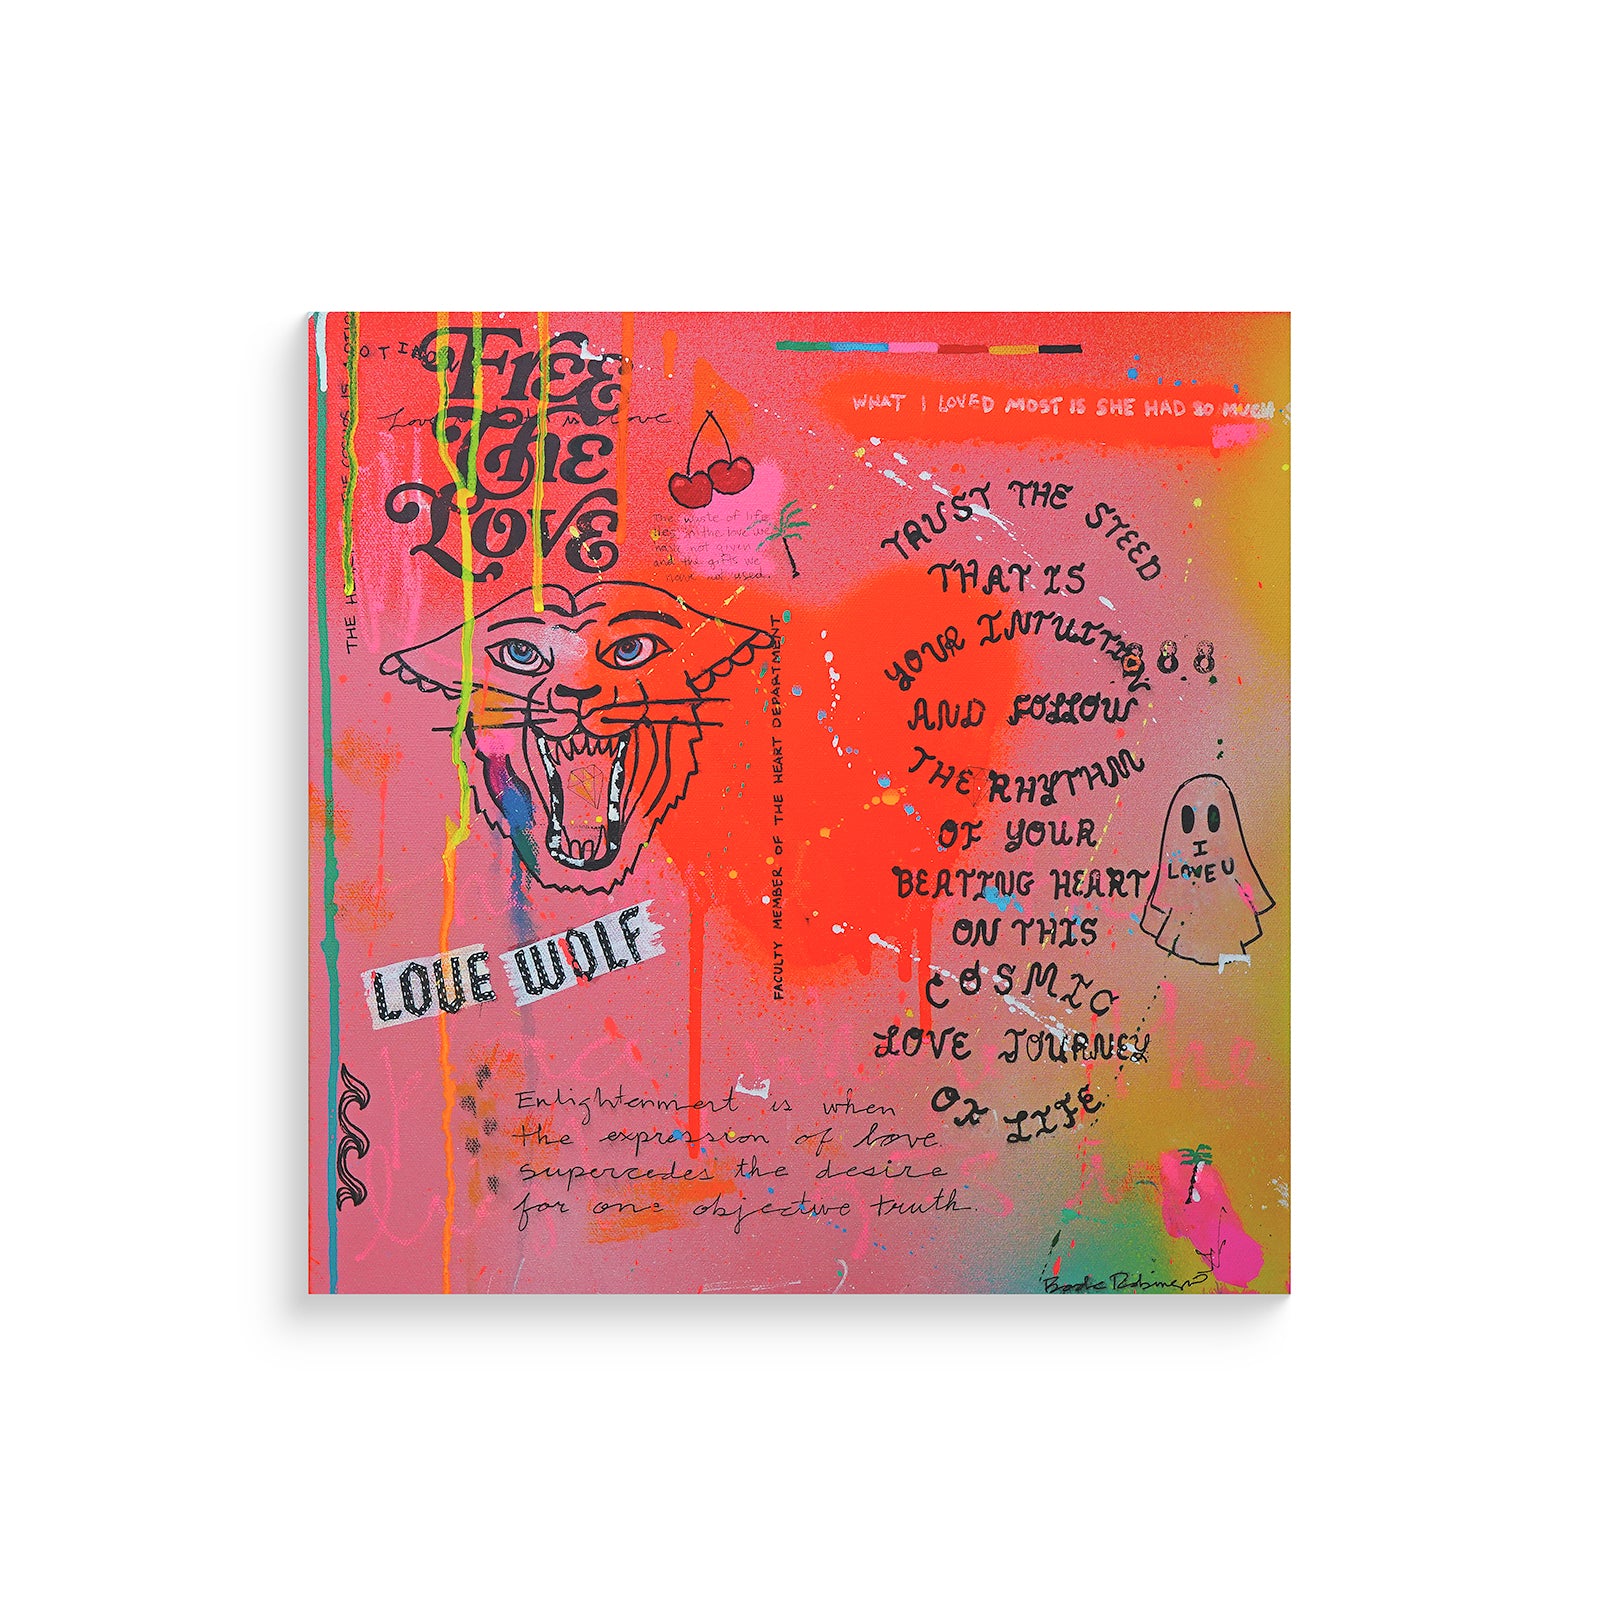 FREE
THE
LOVE
WHAT I LOVED MOST IS SHE HAD SO MUCH
The waste of life
the love we
have not given
and the gifts we
have not used.
TRUST THE STEED
THAT IS
YOUR INTUITION
AND FOLLOW
THE RHYTHM
OF YOUR
BEATING HEART
ON THIS
COSMIC
LOVE JOURNEY
OF LIFE
888
I
LOVE U
FACULTY MEMBER OF THE HEART DEPARTMENT
LOVE WOLF
Enlightenment is when
the expression of love
supercedes the desire
for one objective truth.